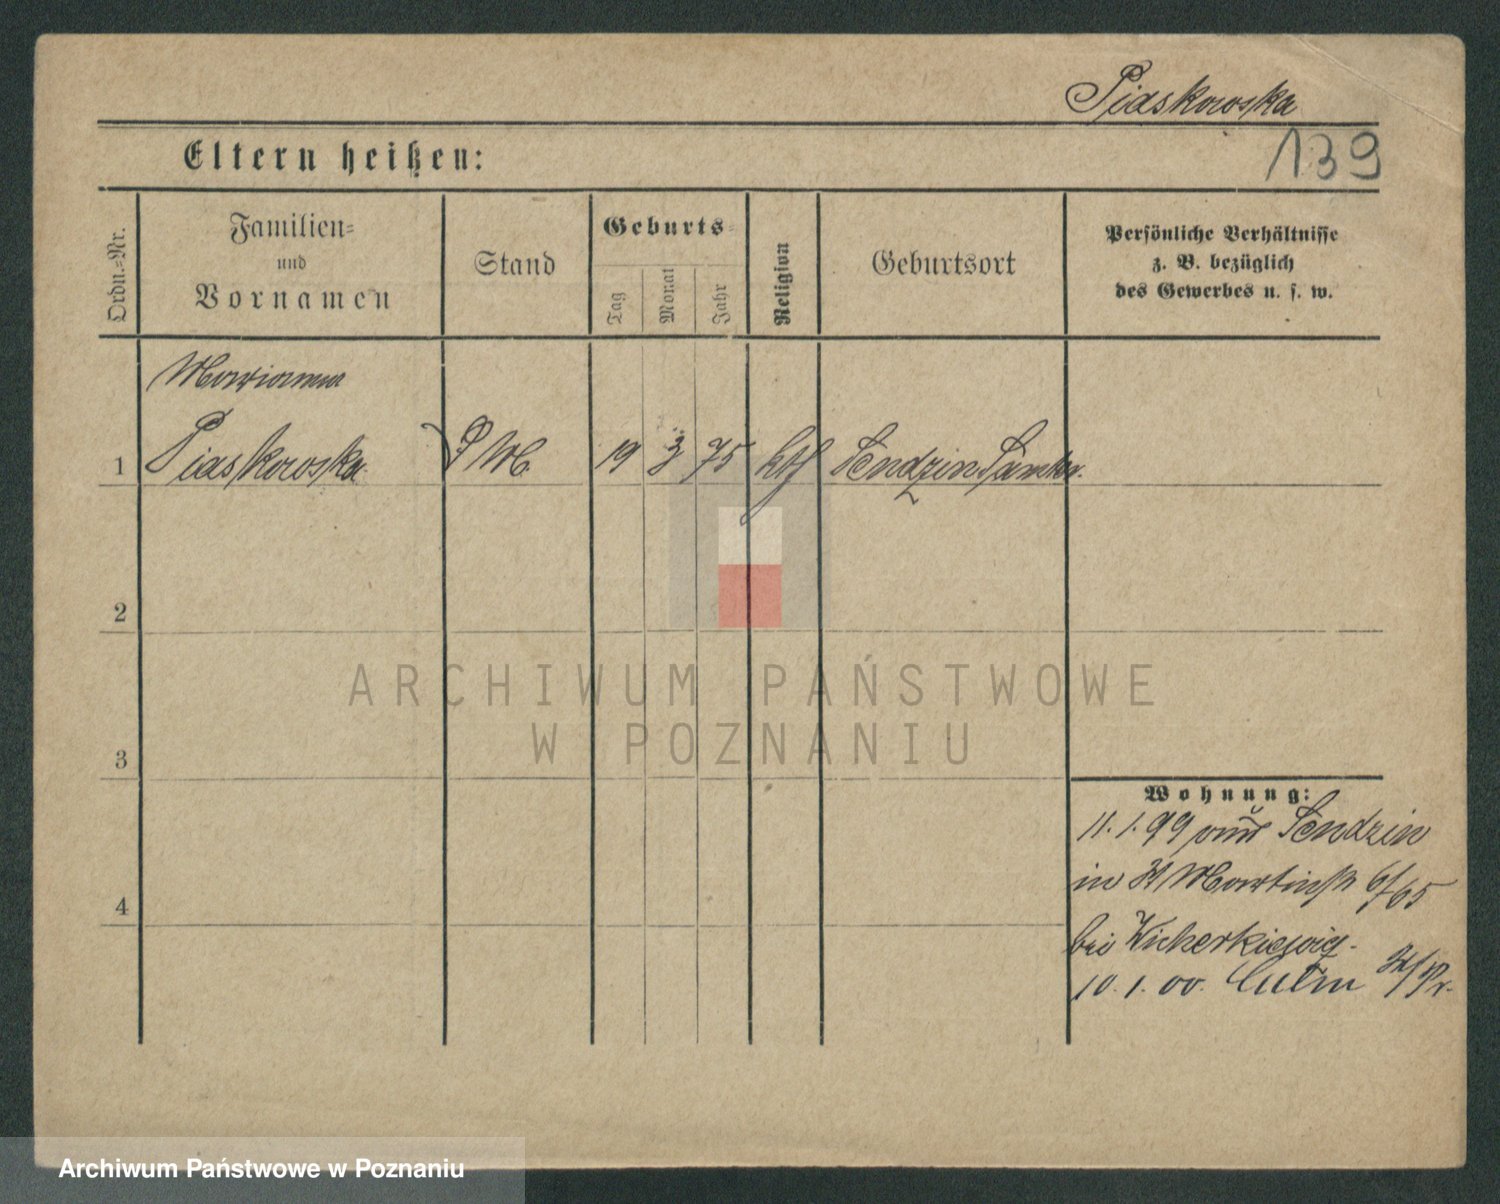 Piaskowska
139
Eltern heißen:
Ordn.-Nr.
Familien-
und
Vornamen
Stand
Geburts-
Tag
Monat
Jahr
Religion
Geburtsort
Persönliche Verhältnisse
z. B. bezüglich
des Gewerbes u. s. w.
Marianna
1 Piaskowska 19 3 75 kth Sendzin Samter
2
3
4
ARCHIWUM PAŃSTWOWE
W POZNANIU
Wohnung:
11.1.99 aus Sendzin
in St Martinstr 6/65
bei Wicherkiewicz
10.1.00. Culm W/Pr.
Archiwum Państwowe w Poznaniu